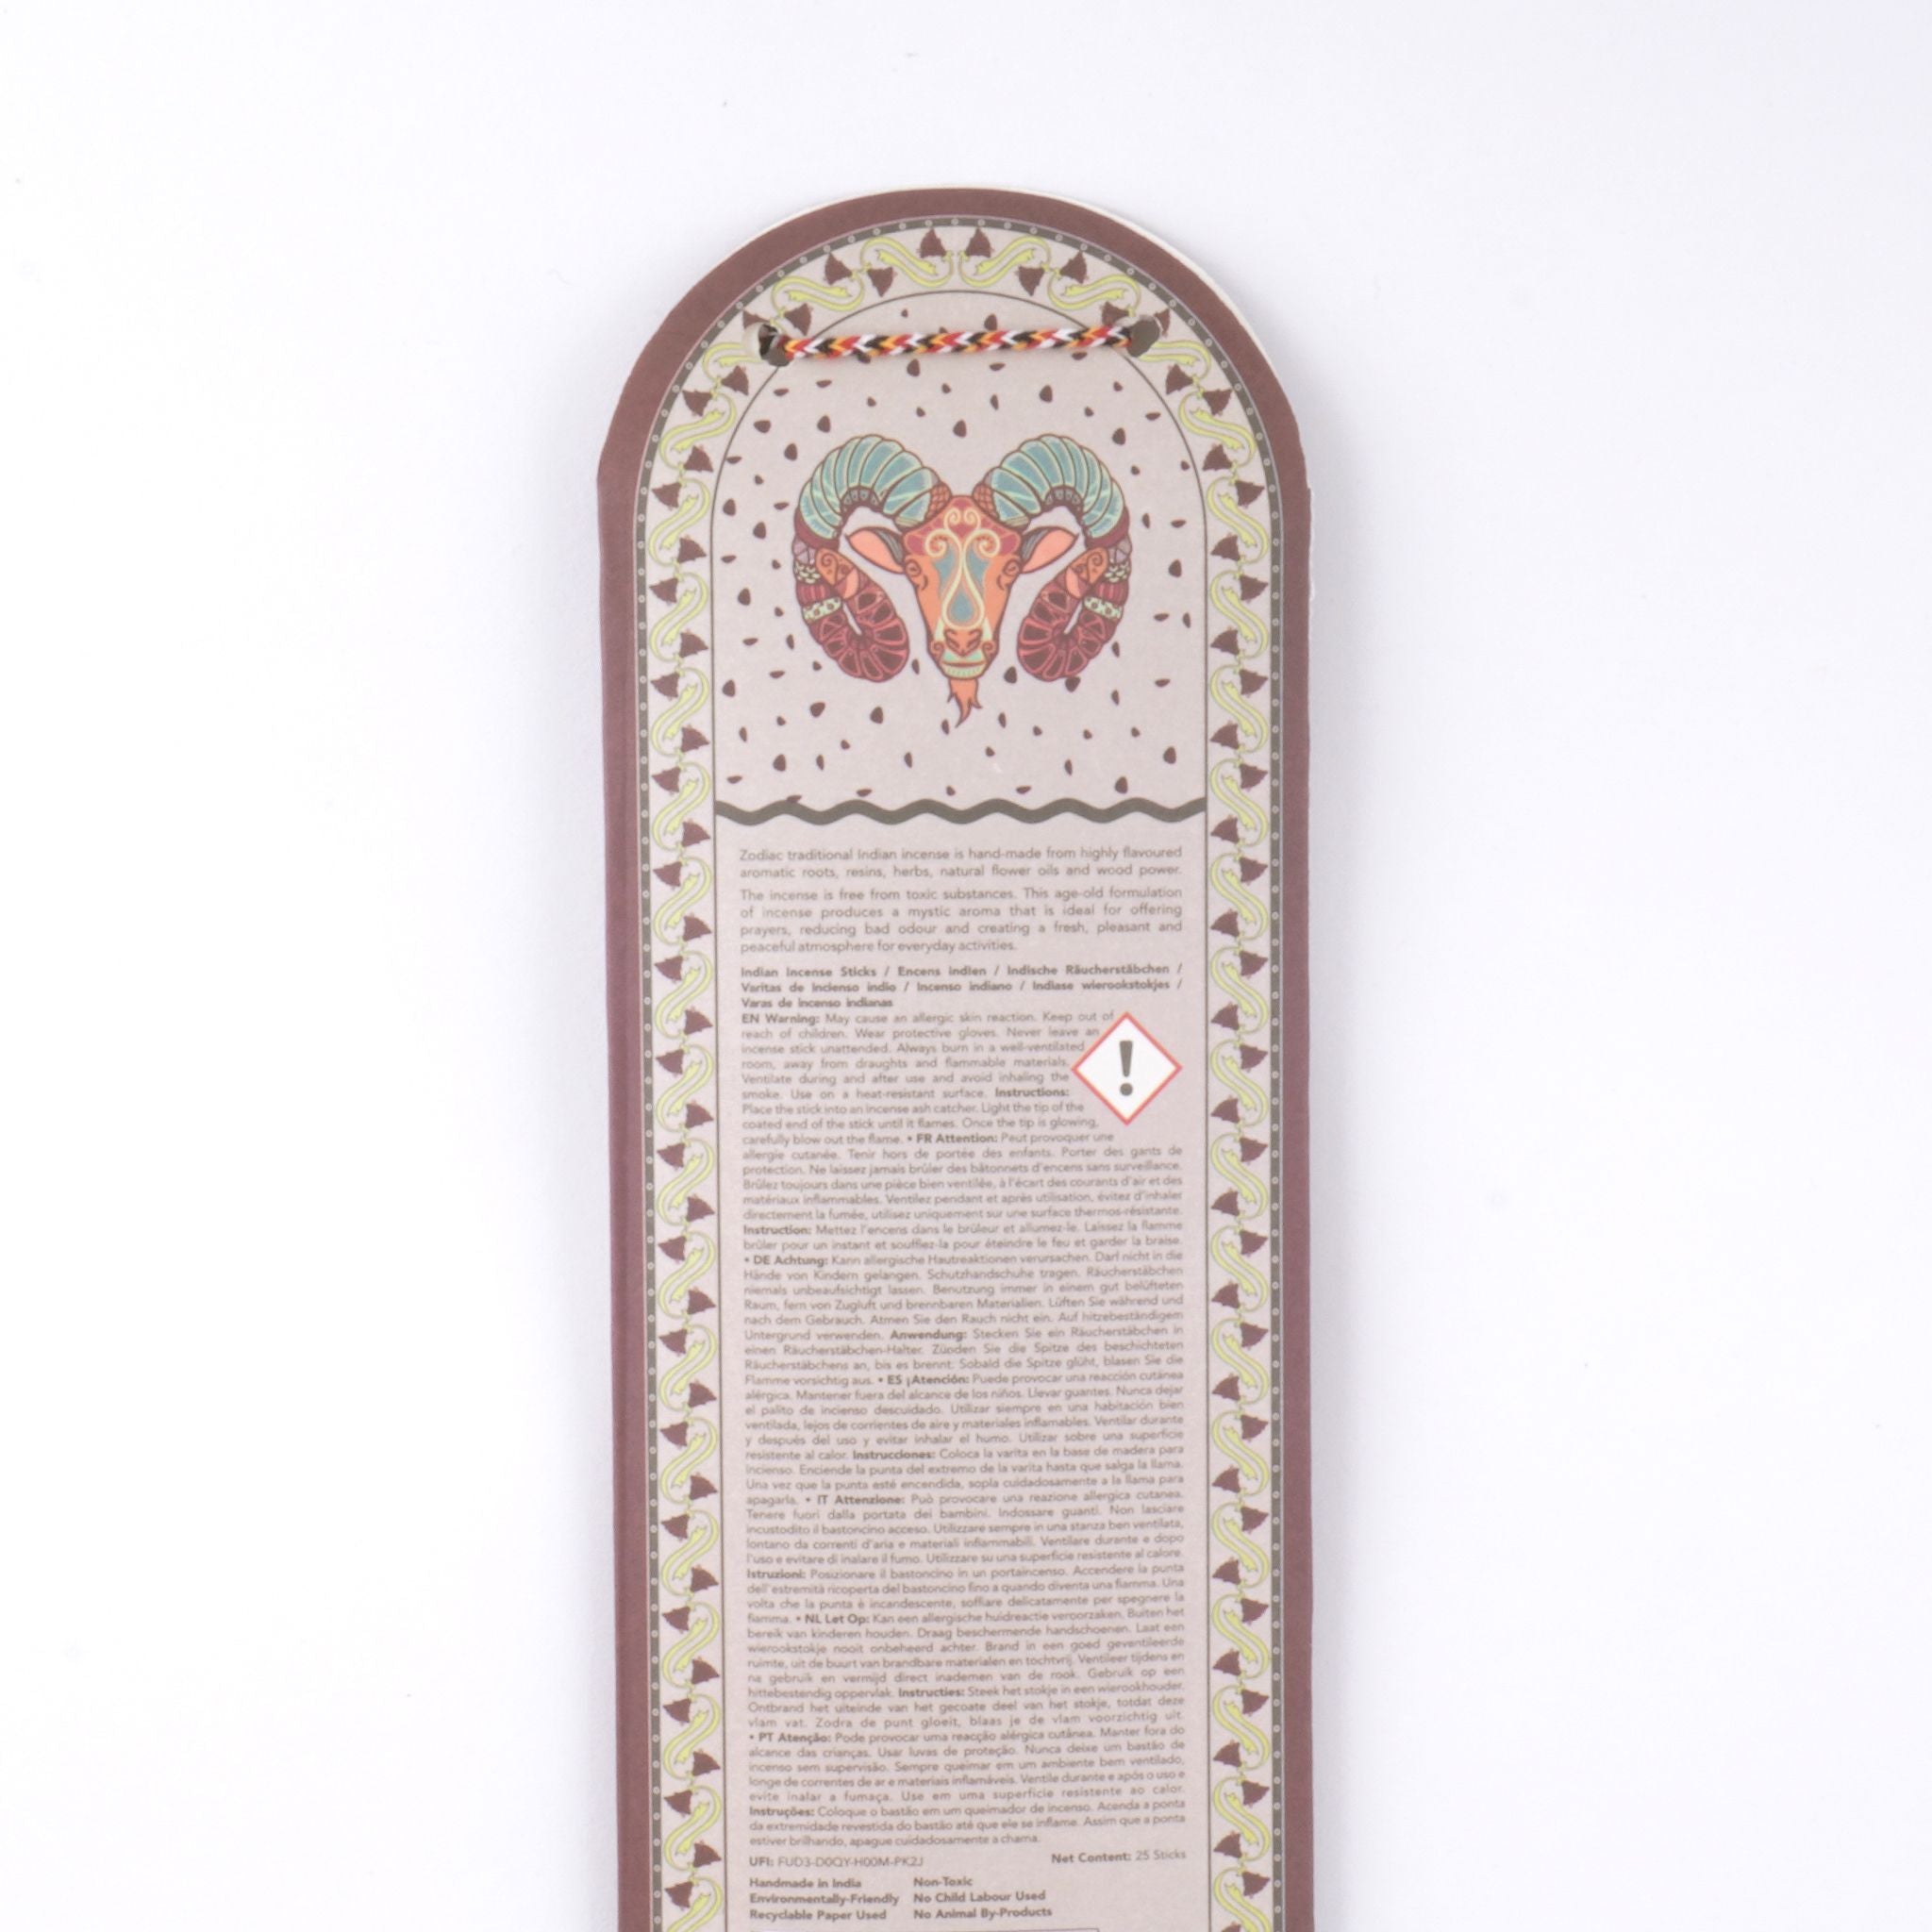 Zodiac traditional Indian incense is hand-made from highly flavoured
aromatic roots, resins, herbs, natural flower oils and wood power.
The incense is free from toxic substances. This age-old formulation
of incense produces a mystic aroma that is ideal for offering
prayers, reducing bad odour and creating a fresh, pleasant and
peaceful atmosphere for everyday activities.
Indian Incense Sticks / Encens indien / Indische Räucherstäbchen /
Varitas de Incienso indio / Incenso indiano / Indiase wierookstokjes /
Varas de incenso indianas
EN Warning: May cause an allergic skin reaction. Keep out of
reach of children. Wear protective gloves. Never leave an
incense stick unattended. Always burn in a well-ventilated
room, away from draughts and flammable materials.
Ventilate during and after use and avoid inhaling the
smoke. Use on a heat-resistant surface. Instructions:
Place the stick into an incense ash catcher. Light the tip of the
coated end of the stick until it flames. Once the tip is glowing,
carefully blow out the flame. • FR Attention: Peut provoquer une
allergie cutanée. Tenir hors de portée des enfants. Porter des gants de
protection. Ne laissez jamais brûler des bâtonnets d'encens sans surveillance.
Brûlez toujours dans une pièce bien ventilée, à l'écart des courants d'air et des
matériaux inflammables. Ventilez pendant et après utilisation, évitez d'inhaler
directement la fumée, utilisez uniquement sur une surface thermos-résistante.
Instruction: Mettez l'encens dans le brûleur et allumez-le. Laissez la flamme
brûler pour un instant et soufflez-la pour éteindre le feu et garder la braise.
• DE Achtung: Kann allergische Hautreaktionen verursachen. Darf nicht in die
Hände von Kindern gelangen. Schutzhandschuhe tragen. Räucherstäbchen
niemals unbeaufsichtigt lassen. Benutzung immer in einem gut belüfteten
Raum, fern von Zugluft und brennbaren Materialien. Lüften Sie während und
nach dem Gebrauch. Atmen Sie den Rauch nicht ein. Auf hitzebeständigem
Untergrund verwenden. Anwendung: Stecken Sie ein Räucherstäbchen in
einen Räucherstäbchen-Halter. Zünden Sie die Spitze des beschichteten
Räucherstäbchens an, bis es brennt. Sobald die Spitze glüht, blasen Sie die
Flamme vorsichtig aus. • ES ¡Atención: Puede provocar una reacción cutánea
alérgica. Mantener fuera del alcance de los niños. Llevar guantes. Nunca dejar
el palito de incienso descuidado. Utilizar siempre en una habitación bien
ventilada, lejos de corrientes de aire y materiales inflamables. Ventilar durante
y después del uso y evitar inhalar el humo. Utilizar sobre una superficie
resistente al calor. Instrucciones: Coloca la varita en la base de madera para
incienso. Enciende la punta del extremo de la varita hasta que salga la llama.
Una vez que la punta esté encendida, sopla cuidadosamente a la llama para
apagarla. • IT Attenzione: Può provocare una reazione allergica cutanea.
Tenere fuori dalla portata dei bambini. Indossare guanti. Non lasciare
incustodito il bastoncino acceso. Utilizzare sempre in una stanza ben ventilata,
lontano da correnti d'aria e materiali infiammabili. Ventilare durante e dopo
l'uso e evitare di inalare il fumo. Utilizzare su una superficie resistente al calore.
Istruzioni: Posizionare il bastoncino in un portaincenso. Accendere la punta
dell'estremità ricoperta del bastoncino fino a quando diventa una fiamma. Una
volta che la punta è incandescente, soffiare delicatamente per spegnere la
fiamma. • NL Let Op: Kan een allergische huidreactie veroorzaken. Buiten het
bereik van kinderen houden. Draag beschermende handschoenen. Laat een
wierookstokje nooit onbeheerd achter. Brand in een goed geventileerde
ruimte, uit de buurt van brandbare materialen en tochtvrij. Ventileer tijdens en
na gebruik en vermijd direct inademen van de rook. Gebruik op een
hittebestendig oppervlak. Instructies: Steek het stokje in een wierookhouder.
Ontbrand het uiteinde van het gecoate deel van het stokje, totdat deze
vlam vat. Zodra de punt gloeit, blaas je de vlam voorzichtig uit.
• PT Atenção: Pode provocar uma reacção alérgica cutânea. Manter fora do
alcance das crianças. Usar luvas de proteção. Nunca deixe um bastão de
incenso sem supervisão. Sempre queimar em um ambiente bem ventilado,
longe de correntes de ar e materiais inflamáveis. Ventile durante e após o uso e
evite inalar a fumaça. Use em uma superfície resistente ao calor.
Instruções: Coloque o bastão em um queimador de incenso. Acenda a ponta
da extremidade revestida do bastão até que ele se inflame. Assim que a ponta
estiver brilhando, apague cuidadosamente a chama.
UFI: FUD3-D0QY-H00M-PK2J Net Content: 25 Sticks
Handmade in India Non-Toxic
Environmentally-Friendly No Child Labour Used
Recyclable Paper Used No Animal By-Products